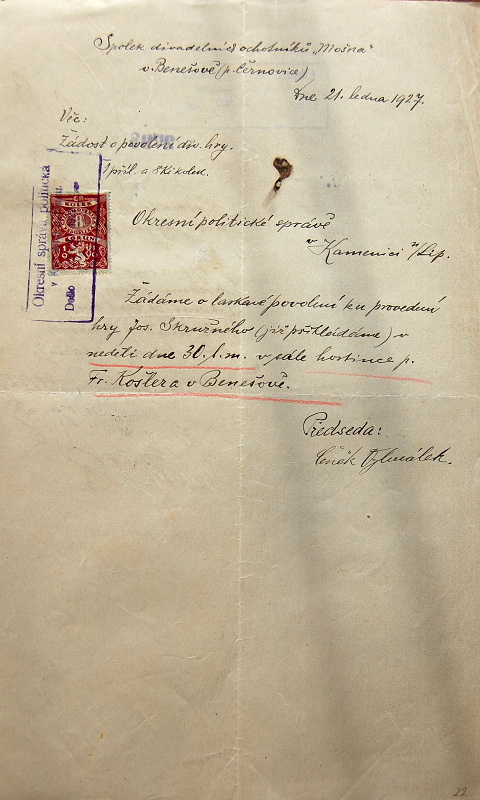 Spolek divadelních ochotníků „Mošna"
v Benešově (p. Černovice)
Dne 21. ledna 1927.
Věc:
Žádost o povolení div. hry.
1 příl. a 8 Kč kolek.
Okresní správa politická
v
Došlo
KOLEK
8
KORUN
Okresní politické správě
v Kamenici n/Lip.
Žádáme o laskavé povolení ku provedení
hry Jos. Skružného (již přikládáme) v
neděli dne 30. t. m. v sále hostince p.
Fr. Koštera v Benešově.
Předseda:
Čeněk
22